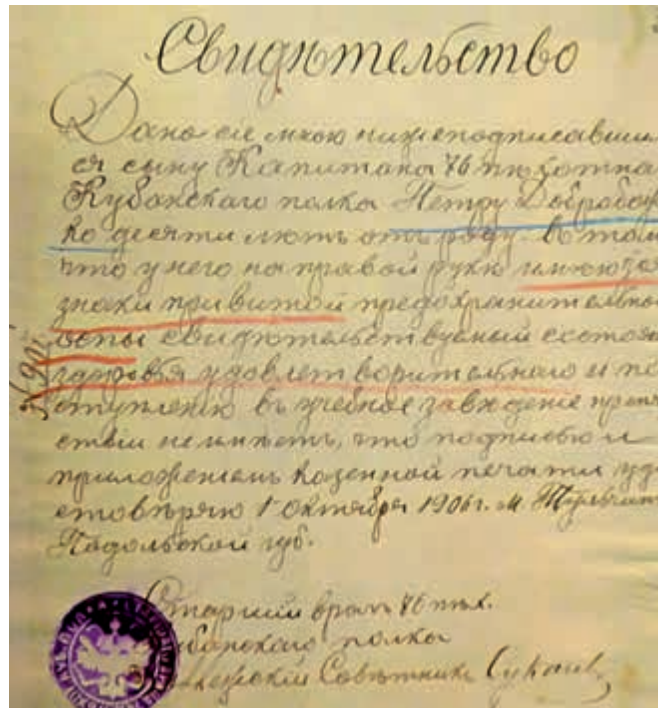 Свидѣтельство
Дано сіе мною нижеподписавшим
ся сыну Капитана 76 пѣхотна
Кубанскаго полка Петру Добробож
ко десяти лѣтъ отъ роду. въ том
что у него на правой рукѣ имѣются
знаки привитой предохранительно
оспы свидѣтельствуемый состоя
здоровья удовлетворительнаго и по
ступленію въ учебное заведеніе препя
ствій не имѣетъ, что подписью и
приложеніемъ казенной печати удо
стовѣряю 1 Октября 1906 г. м. Тульчин
Подольской губ.
Старшій врачъ 76 пѣх.
Кубанскаго полка
Совѣтникъ